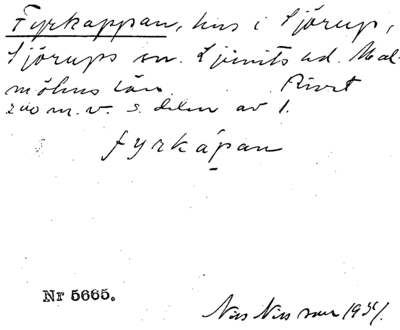 Fyrkappan, hus i Sjörup,
Sjörups sn. Ljunits hd. Mal-
möhus län. Rivet
200 m. v. s. delen av 1.
fyrkápan
Nr 5665.
Nils Nilsson 1931.